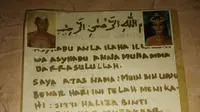 بسم الله الرحمن الرحيم
ASYHADU ANLA ILAHA ILL
WA ASYHADU ANNA MUHAMMA
DARRASULULLAH.
SAYA ATAS NAMA: MUHIDIN UIDU
BENAR HARI INI TELAH MENIKA-
HI: SITTI HALIZA BINTI